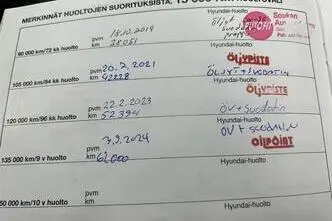 MERKINNÄT HUOLTOJEN SUORITUKSISTA.
pvm 18.10.2019
90 000 km/72 kk huolto km
Hyundai-huolto
pvm 20.7.2021 ÖLJYPISTE
105 000 km/84 kk huolto km 42228 ÖLJYT+SUODATIN
Hyundai-huolto
ÖLJYPISTE
pvm 22.2.2023
120 000 km/96 kk huolto km 52394 ÖV+Suodatin
Hyundai-huolto
pvm 3.9.2024 ÖV+SUODATIN
135 000 km/9 v huolto km 62000 OILPOINT
Hyundai-huolto
pvm
50 000 km/10 v huolto km
Hyundai-huolto